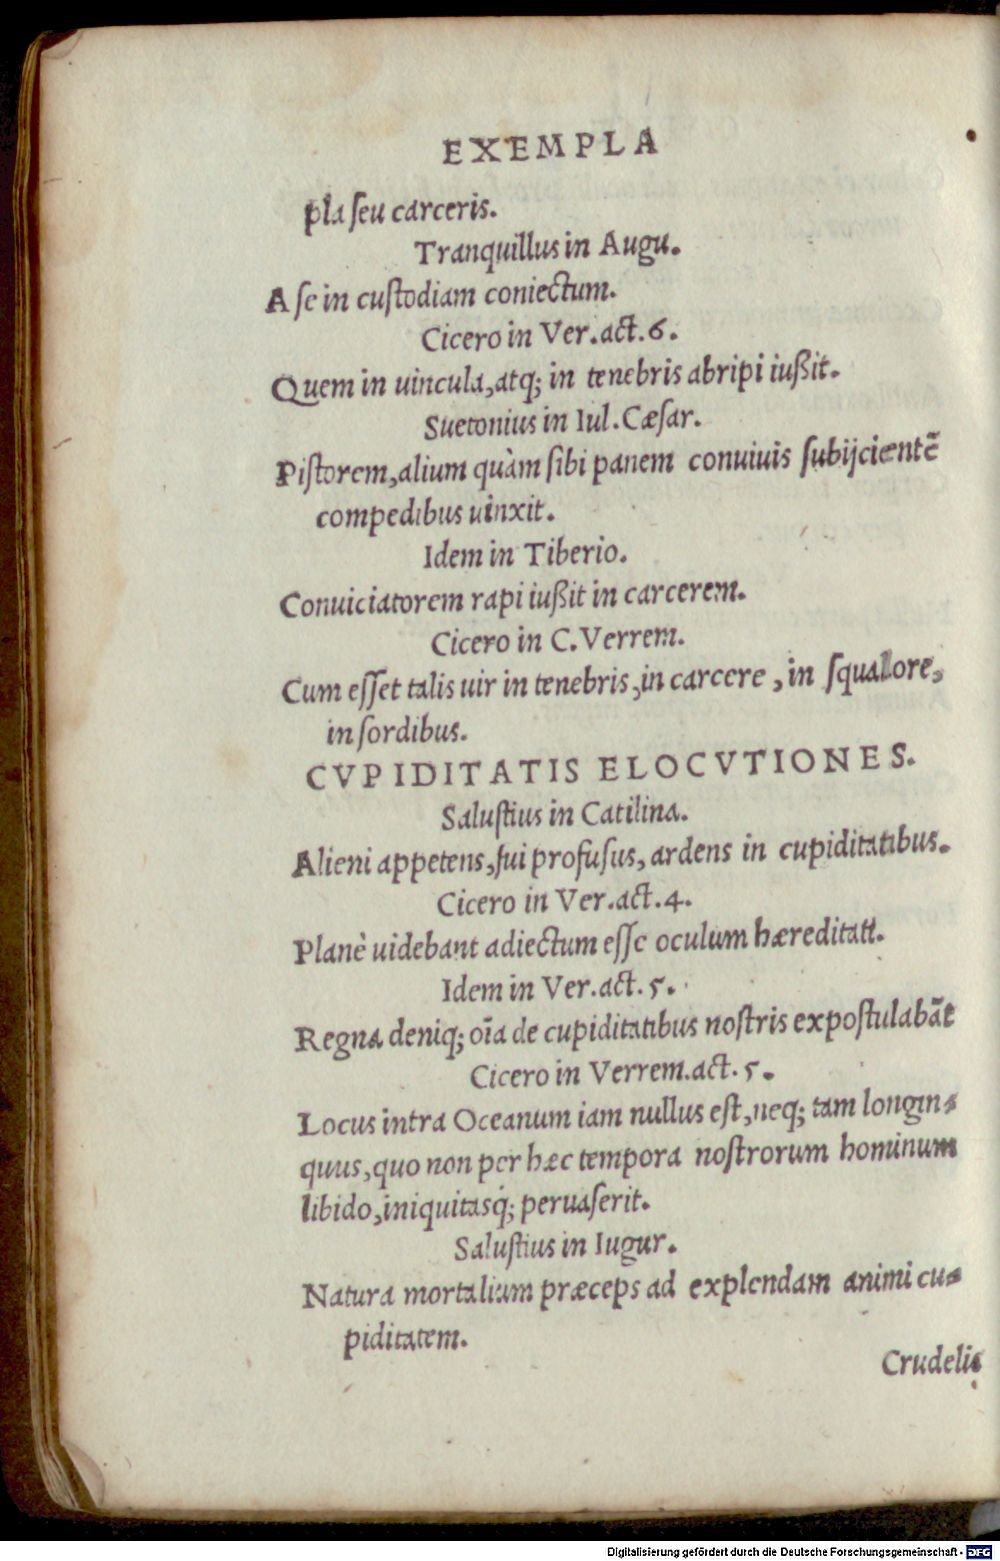 EXEMPLA
pla ſeu carceris.
Tranquillus in Augu.
A ſe in cuſtodiam coniectum.
Cicero in Ver.act.6.
Quem in uincula,atq; in tenebris abripi iußit.
Suetonius in Iul.Cæſar.
Piſtorem,alium quàm ſibi panem conuiuis ſubijcientē
compedibus uinxit.
Idem in Tiberio.
Conuiciatorem rapi iußit in carcerem.
Cicero in C.Verrem.
Cum eſſet talis uir in tenebris,in carcere, in ſqualore,
in ſordibus.
CVPIDITATIS ELOCVTIONES.
Saluſtius in Catilina.
Alieni appetens,ſui profuſus, ardens in cupiditatibus.
Cicero in Ver.act.4.
Planè uidebant adiectum eſſe oculum hæreditati.
Idem in Ver.act.5.
Regna deniq; oīa de cupiditatibus noſtris expoſtulabāt
Cicero in Verrem.act.5.
Locus intra Oceanum iam nullus eſt,neq; tam longin-
quus,quo non per hæc tempora noſtrorum hominum
libido,iniquitasq́; peruaſerit.
Saluſtius in Iugur.
Natura mortalium præceps ad explendam animi cu-
piditatem.
Crudelis
Digitalisierung gefördert durch die Deutsche Forschungsgemeinschaft - DFG